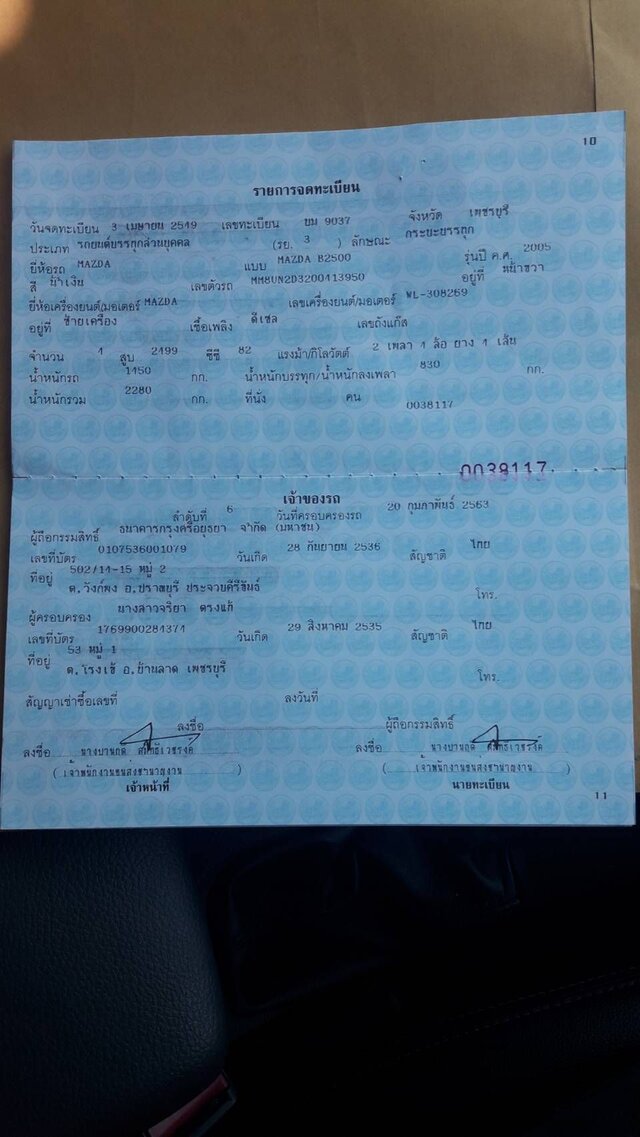 10
รายการจดทะเบียน
วันจดทะเบียน 3 เมษายน 2549 เลขทะเบียน บม 9037 จังหวัด เพชรบุรี
ประเภท รถยนต์บรรทุกส่วนบุคคล (รย. 3 ) ลักษณะ กระบะบรรทุก
ยี่ห้อรถ MAZDA แบบ MAZDA B2500 รุ่นปี ค.ศ. 2005
สี น้ำเงิน เลขตัวรถ MM8UN2D3200413950 อยู่ที่ หน้าขวา
ยี่ห้อเครื่องยนต์/มอเตอร์ MAZDA เลขเครื่องยนต์/มอเตอร์ WL-308269
อยู่ที่ ซ้ายเครื่อง เชื้อเพลิง ดีเซล เลขถังแก๊ส
จำนวน 4 สูบ 2499 ซีซี 82 แรงม้า/กิโลวัตต์ 2 เพลา 4 ล้อ ยาง 4 เส้น
น้ำหนักรถ 1450 กก. น้ำหนักบรรทุก/น้ำหนักลงเพลา 830 กก.
น้ำหนักรวม 2280 กก. ที่นั่ง คน 0038117
0038117
เจ้าของรถ
ลำดับที่ 6 วันที่ครอบครองรถ 20 กุมภาพันธ์ 2563
ผู้ถือกรรมสิทธิ์ ธนาคารกรุงศรีอยุธยา จำกัด (มหาชน)
เลขที่บัตร 0107536001079 วันเกิด 28 กันยายน 2536 สัญชาติ ไทย
ที่อยู่ 502/14-15 หมู่ 2
ต.วังก์พง อ.ปราณบุรี ประจวบคีรีขันธ์ โทร.
ผู้ครอบครอง นางสาวจริยา ตรงแก้
เลขที่บัตร 1769900284374 วันเกิด 29 สิงหาคม 2535 สัญชาติ ไทย
ที่อยู่ 53 หมู่ 1
ต.โรงเข้ อ.บ้านลาด เพชรบุรี โทร.
สัญญาเช่าซื้อเลขที่ ลงวันที่
ลงชื่อ ผู้ถือกรรมสิทธิ์
ลงชื่อ ลงชื่อ
( เจ้าพนักงานขนส่งชำนาญงาน ) ( เจ้าพนักงานขนส่งชำนาญงาน )
เจ้าหน้าที่ นายทะเบียน
11